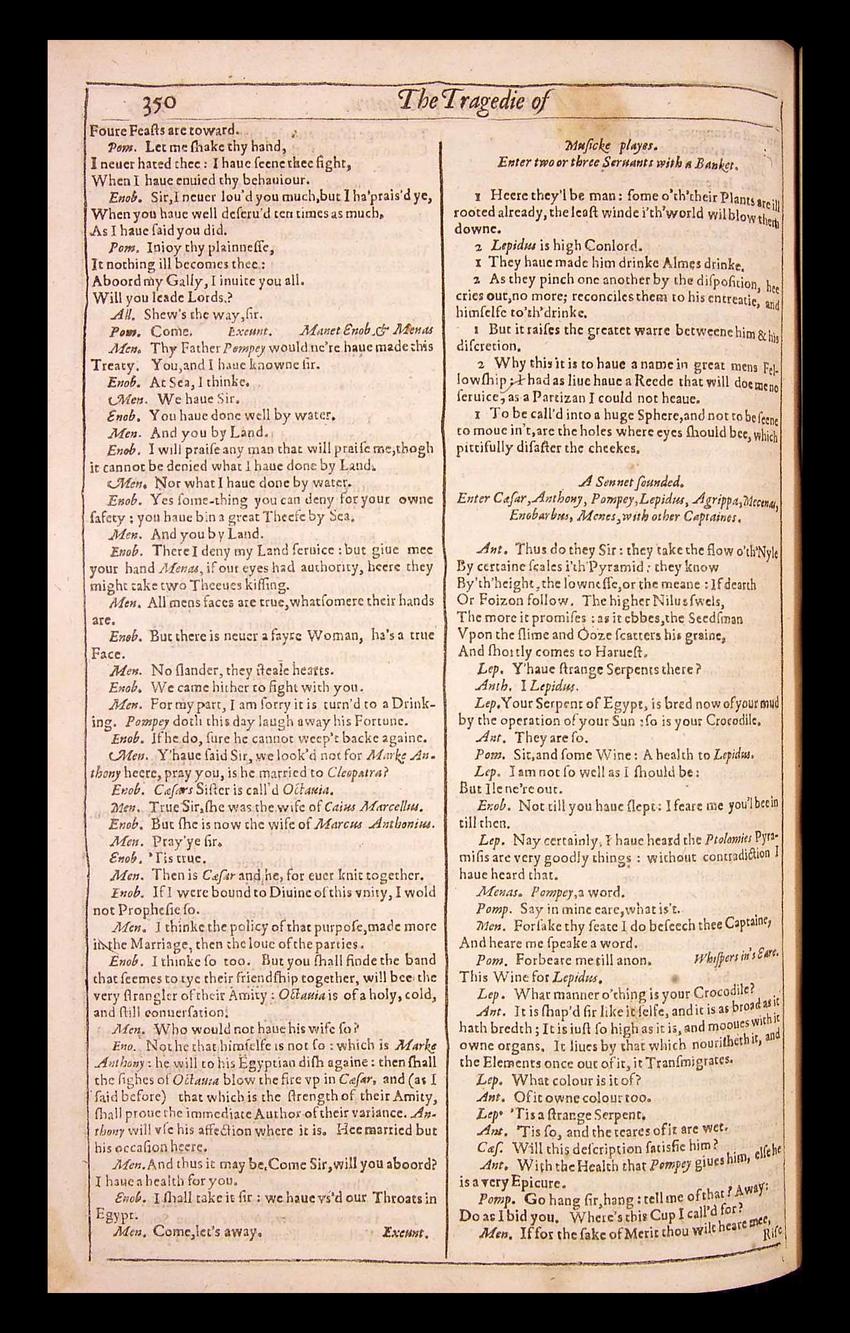 350
The Tragedie of
Foure Feasts are toward.
Pom. Let me shake thy hand,
I neuer hated thee: I haue seene thee fight,
When I haue enuied thy behauiour.
Enob. Sir, I neuer lou'd you much, but I ha'prais'd ye,
When you haue well deseru'd ten times as much,
As I haue said you did.
Pom. Inioy thy plainnesse,
It nothing ill becomes thee:
Aboord my Gally, I inuite you all.
Will you leade Lords?
All. Shew's the way, sir.
Pom. Come. Exeunt. Manet Enob. & Menas
Men. Thy Father Pompey would ne're haue made this
Treaty. You, and I haue knowne sir.
Enob. At Sea, I thinke.
Men. We haue Sir.
Enob. You haue done well by water.
Men. And you by Land.
Enob. I will praise any man that will praise me, thogh
it cannot be denied what I haue done by Land.
Men. Nor what I haue done by water.
Enob. Yes some-thing you can deny for your owne
safety: you haue bin a great Theefe by Sea.
Men. And you by Land.
Enob. There I deny my Land seruice: but giue mee
your hand Menas, if our eyes had authority, heere they
might take two Theeues kissing.
Men. All mens faces are true, whatsomere their hands
are.
Enob. But there is neuer a fayre Woman, ha's a true
Face.
Men. No slander, they steale hearts.
Enob. We came hither to fight with you.
Men. For my part, I am sorry it is turn'd to a Drink-
ing. Pompey doth this day laugh away his Fortune.
Enob. If he do, sure he cannot weep't backe againe.
Men. Y'haue said Sir, we look'd not for Marke An-
thony heere, pray you, is he married to Cleopatra?
Enob. Cæsars Sister is call'd Octauia.
Men. True Sir, she was the wife of Caius Marcellus.
Enob. But she is now the wife of Marcus Anthonius.
Men. Pray'ye sir.
Enob. 'Tis true.
Men. Then is Cæsar and he, for euer knit together.
Enob. If I were bound to Diuine of this vnity, I wold
not Prophesie so.
Men. I thinke the policy of that purpose, made more
in the Marriage, then the loue of the parties.
Enob. I thinke so too. But you shall finde the band
that seemes to tye their friendship together, will bee the
very strangler of their Amity: Octauia is of a holy, cold,
and still conuersation.
Men. Who would not haue his wife so?
Eno. Not he that himselfe is not so: which is Marke
Anthony: he will to his Egyptian dish againe: then shall
the sighes of Octauia blow the fire vp in Cæsar, and (as I
said before) that which is the strength of their Amity,
shall proue the immediate Author of their variance. An-
thony will vse his affection where it is. Hee married but
his occasion heere.
Men. And thus it may be. Come Sir, will you aboord?
I haue a health for you.
Enob. I shall take it sir: we haue vs'd our Throats in
Egypt.
Men. Come, let's away. Exeunt.
Musicke playes.
Enter two or three Seruants with a Banket.
1 Heere they'l be man: some o'th'their Plants are ill
rooted already, the least winde i'th'world wil blow them
downe.
2 Lepidus is high Conlord.
1 They haue made him drinke Almes drinke.
2 As they pinch one another by the disposition, hee
cries out, no more; reconciles them to his entreatie, and
himselfe to'th'drinke.
1 But it raises the greatet warre betweene him & his
discretion.
2 Why this it is to haue a name in great mens Fel-
lowship: I had as liue haue a Reede that will doe me no
seruice, as a Partizan I could not heaue.
1 To be call'd into a huge Sphere, and not to be seene
to moue in't, are the holes where eyes should bee, which
pittifully disaster the cheekes.
A Sennet sounded.
Enter Cæsar, Anthony, Pompey, Lepidus, Agrippa, Mecenas,
Enobarbus, Menes, with other Captaines.
Ant. Thus do they Sir: they take the flow o'th'Nyle
By certaine scales i'th'Pyramid: they know
By'th'height, the lownesse, or the meane: If dearth
Or Foizon follow. The higher Nilus swels,
The more it promises: as it ebbes, the Seedsman
Vpon the slime and Ooze scatters his graine,
And shortly comes to Haruest.
Lep. Y'haue strange Serpents there?
Anth. I Lepidus.
Lep. Your Serpent of Egypt, is bred now of your mud
by the operation of your Sun: so is your Crocodile.
Ant. They are so.
Pom. Sit, and some Wine: A health to Lepidus.
Lep. I am not so well as I should be:
But Ile ne're out.
Enob. Not till you haue slept: I feare me you'l bee in
till then.
Lep. Nay certainly, I haue heard the Ptolomies Pyra-
misis are very goodly things: without contradiction I
haue heard that.
Menas. Pompey, a word.
Pomp. Say in mine eare, what is't.
Men. Forsake thy seate I do beseech thee Captaine,
And heare me speake a word.
Pom. Forbeare me till anon. Whispers in's Eare.
This Wine for Lepidus.
Lep. What manner o'thing is your Crocodile?
Ant. It is shap'd sir like it selfe, and it is as broad as it
hath bredth; It is iust so high as it is, and mooues with it
owne organs. It liues by that which nourisheth it, and
the Elements once out of it, it Transmigrates.
Lep. What colour is it of?
Ant. Of it owne colour too.
Lep. 'Tis a strange Serpent.
Ant. 'Tis so, and the teares of it are wet.
Cæs. Will this description satisfie him?
Ant. With the Health that Pompey giues him, else he
is a very Epicure.
Pomp. Go hang sir, hang: tell me of that? Away:
Do as I bid you. Where's this Cup I call'd for?
Men. If for the sake of Merit thou wilt heare mee,
Rise